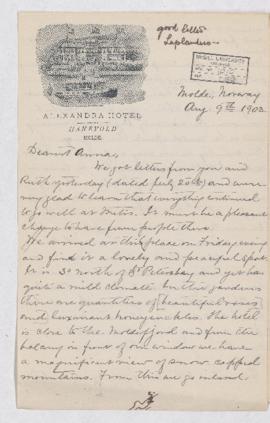 good letter
Laplanders
McGILL UNIVERSITY
ALEXANDRA HOTEL
HARTVOLD
MOLDE.
Molde, Norway
Aug 9th 1902
Dearest Anna,
We got letters from you and
Ruth yesterday (dated July 20th) and were
very glad to learn that everything continued
to go well at Metis. It must be a pleasant
change to have from people there.
We arrived at this place on Friday evening
and find it a lovely and peaceful spot.
It is 3° north of St Petersburg and yet has
quite a mild climate. In the gardens
there are quantities of beautiful roses
and luxuriant honeysuckles. The hotel
is close to the Moldefjord and from the
balcony in front of our window we have
a magnificent view of snow capped
mountains. From this we go